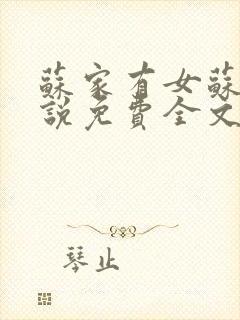 蘇家有女蘇
說免費全文
琴止